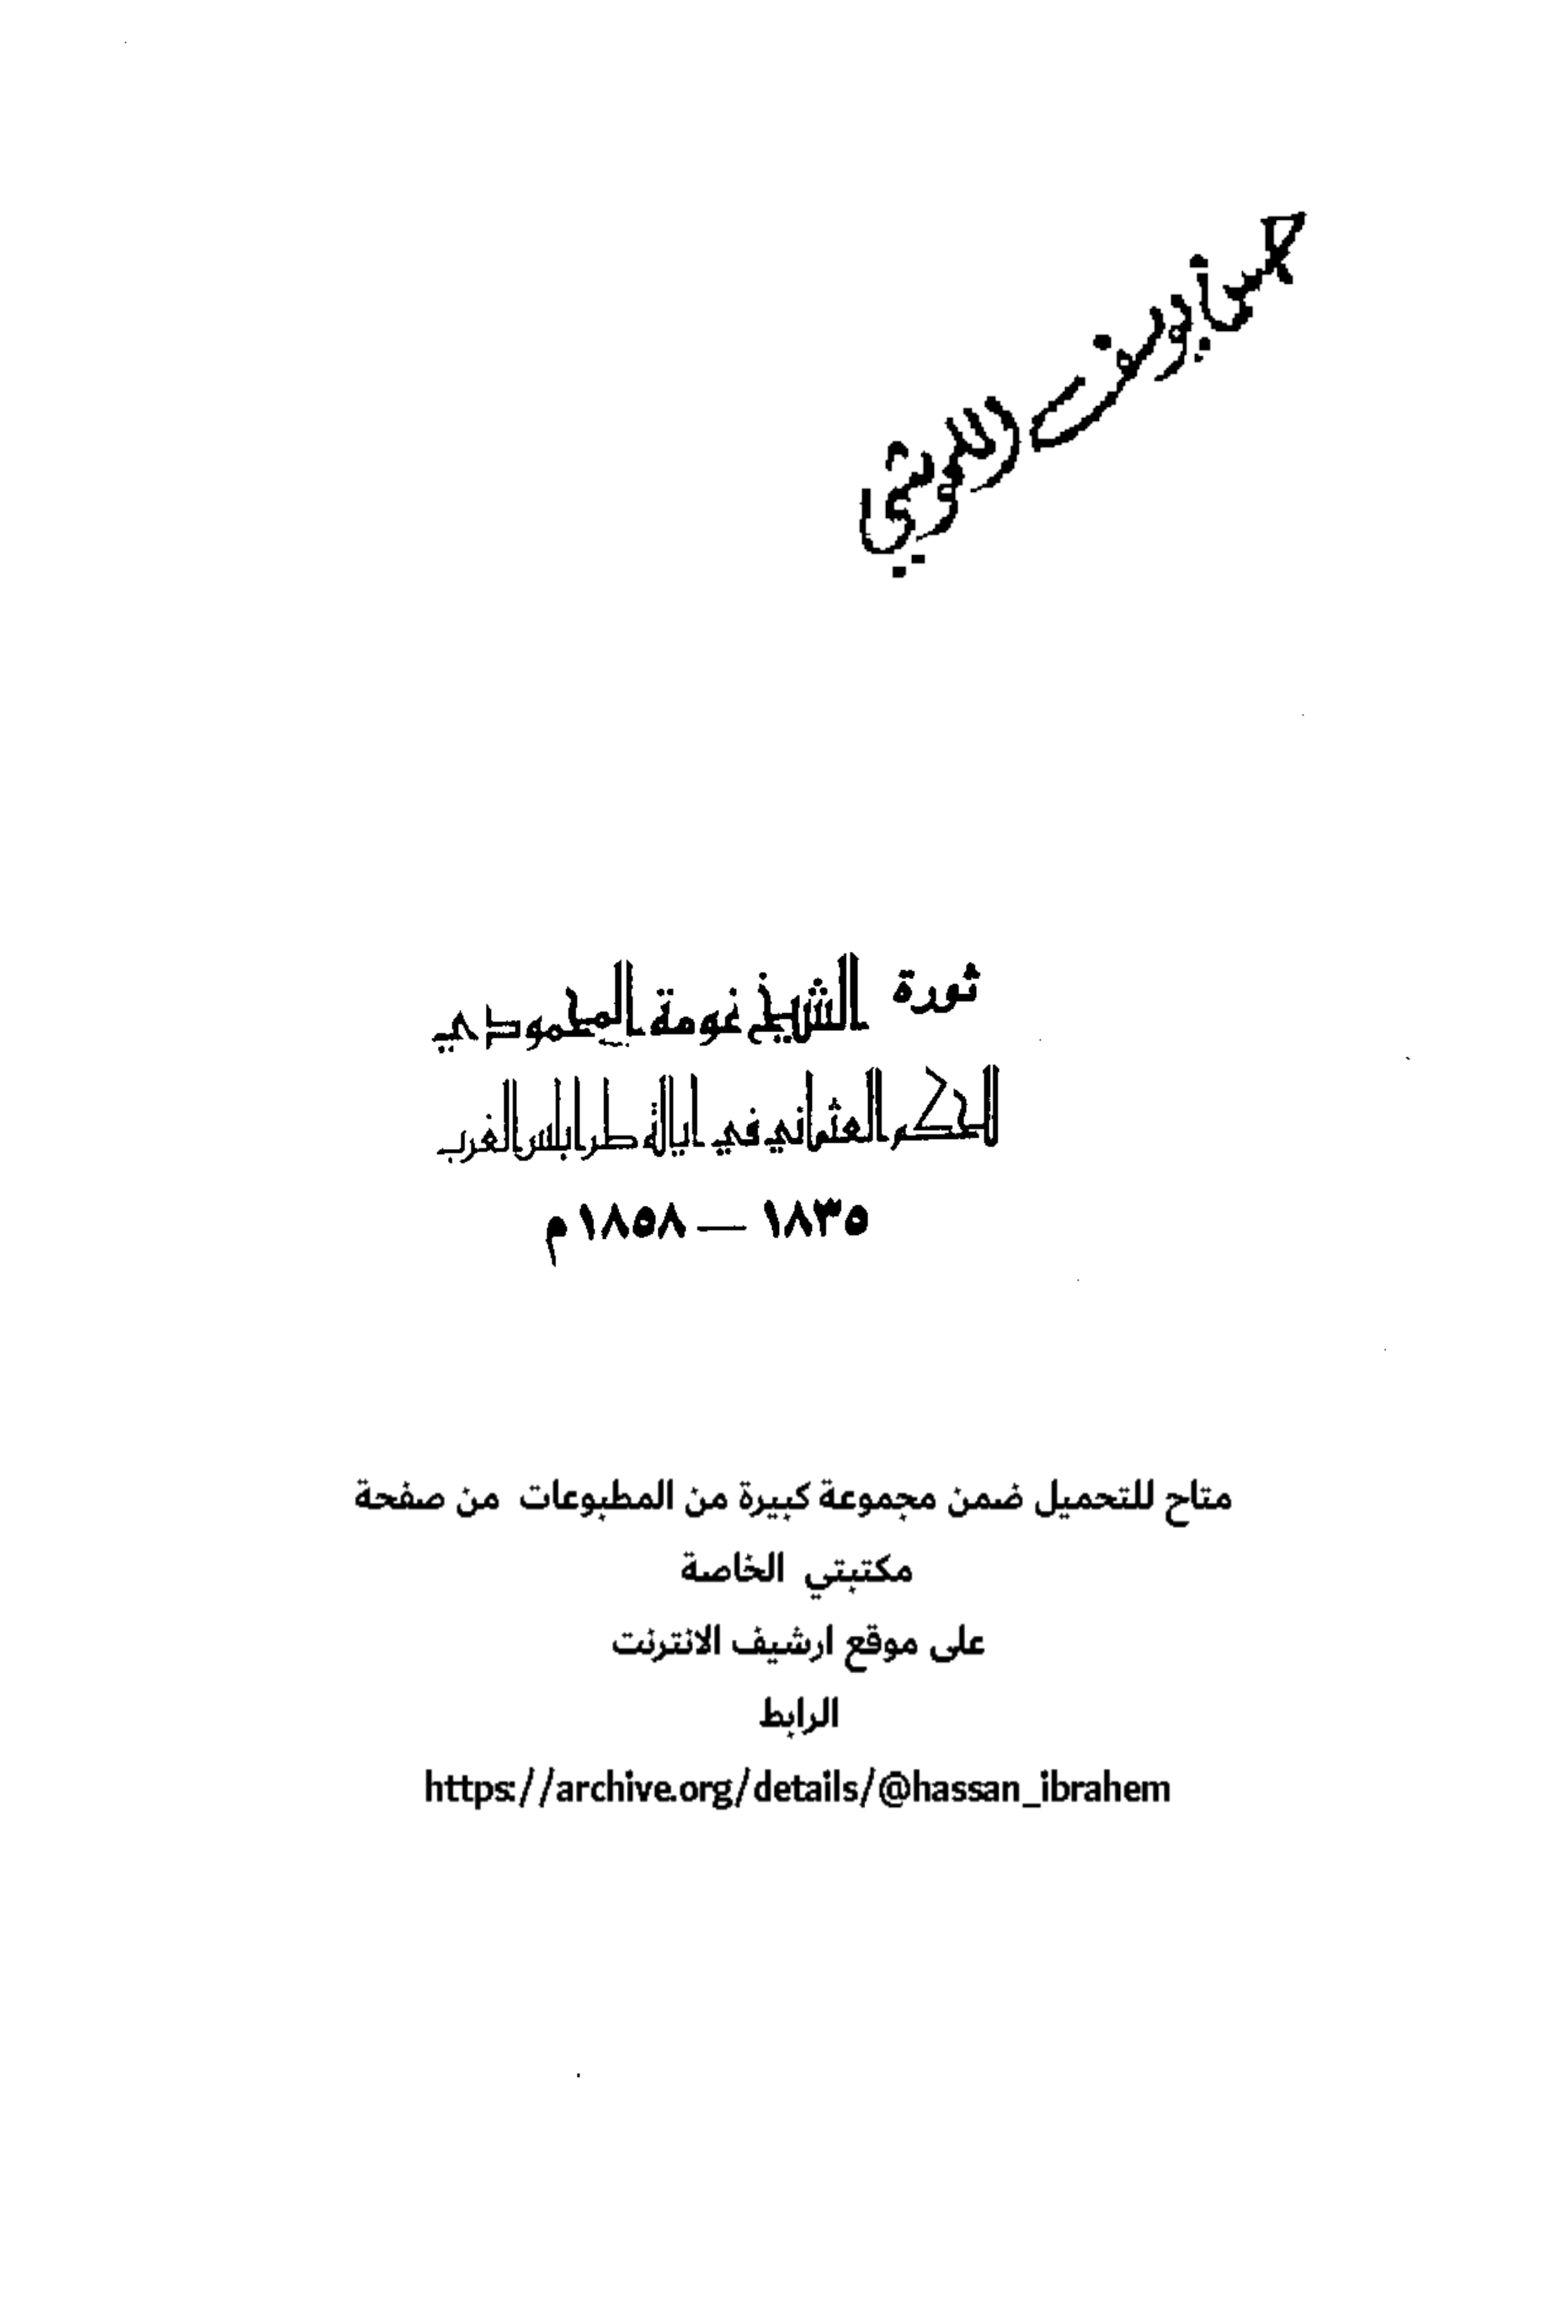 ثورة الشيخ غومة المحمودي
للحكم العثماني في ايالة طرابلس الغرب
١٨٣٥ — ١٨٥٨م
متاح للتحميل ضمن مجموعة كبيرة من المطبوعات من صفحة
مكتبتي الخاصة
على موقع ارشيف الانترنت
الرابط
https://archive.org/details/@hassan_ibrahem